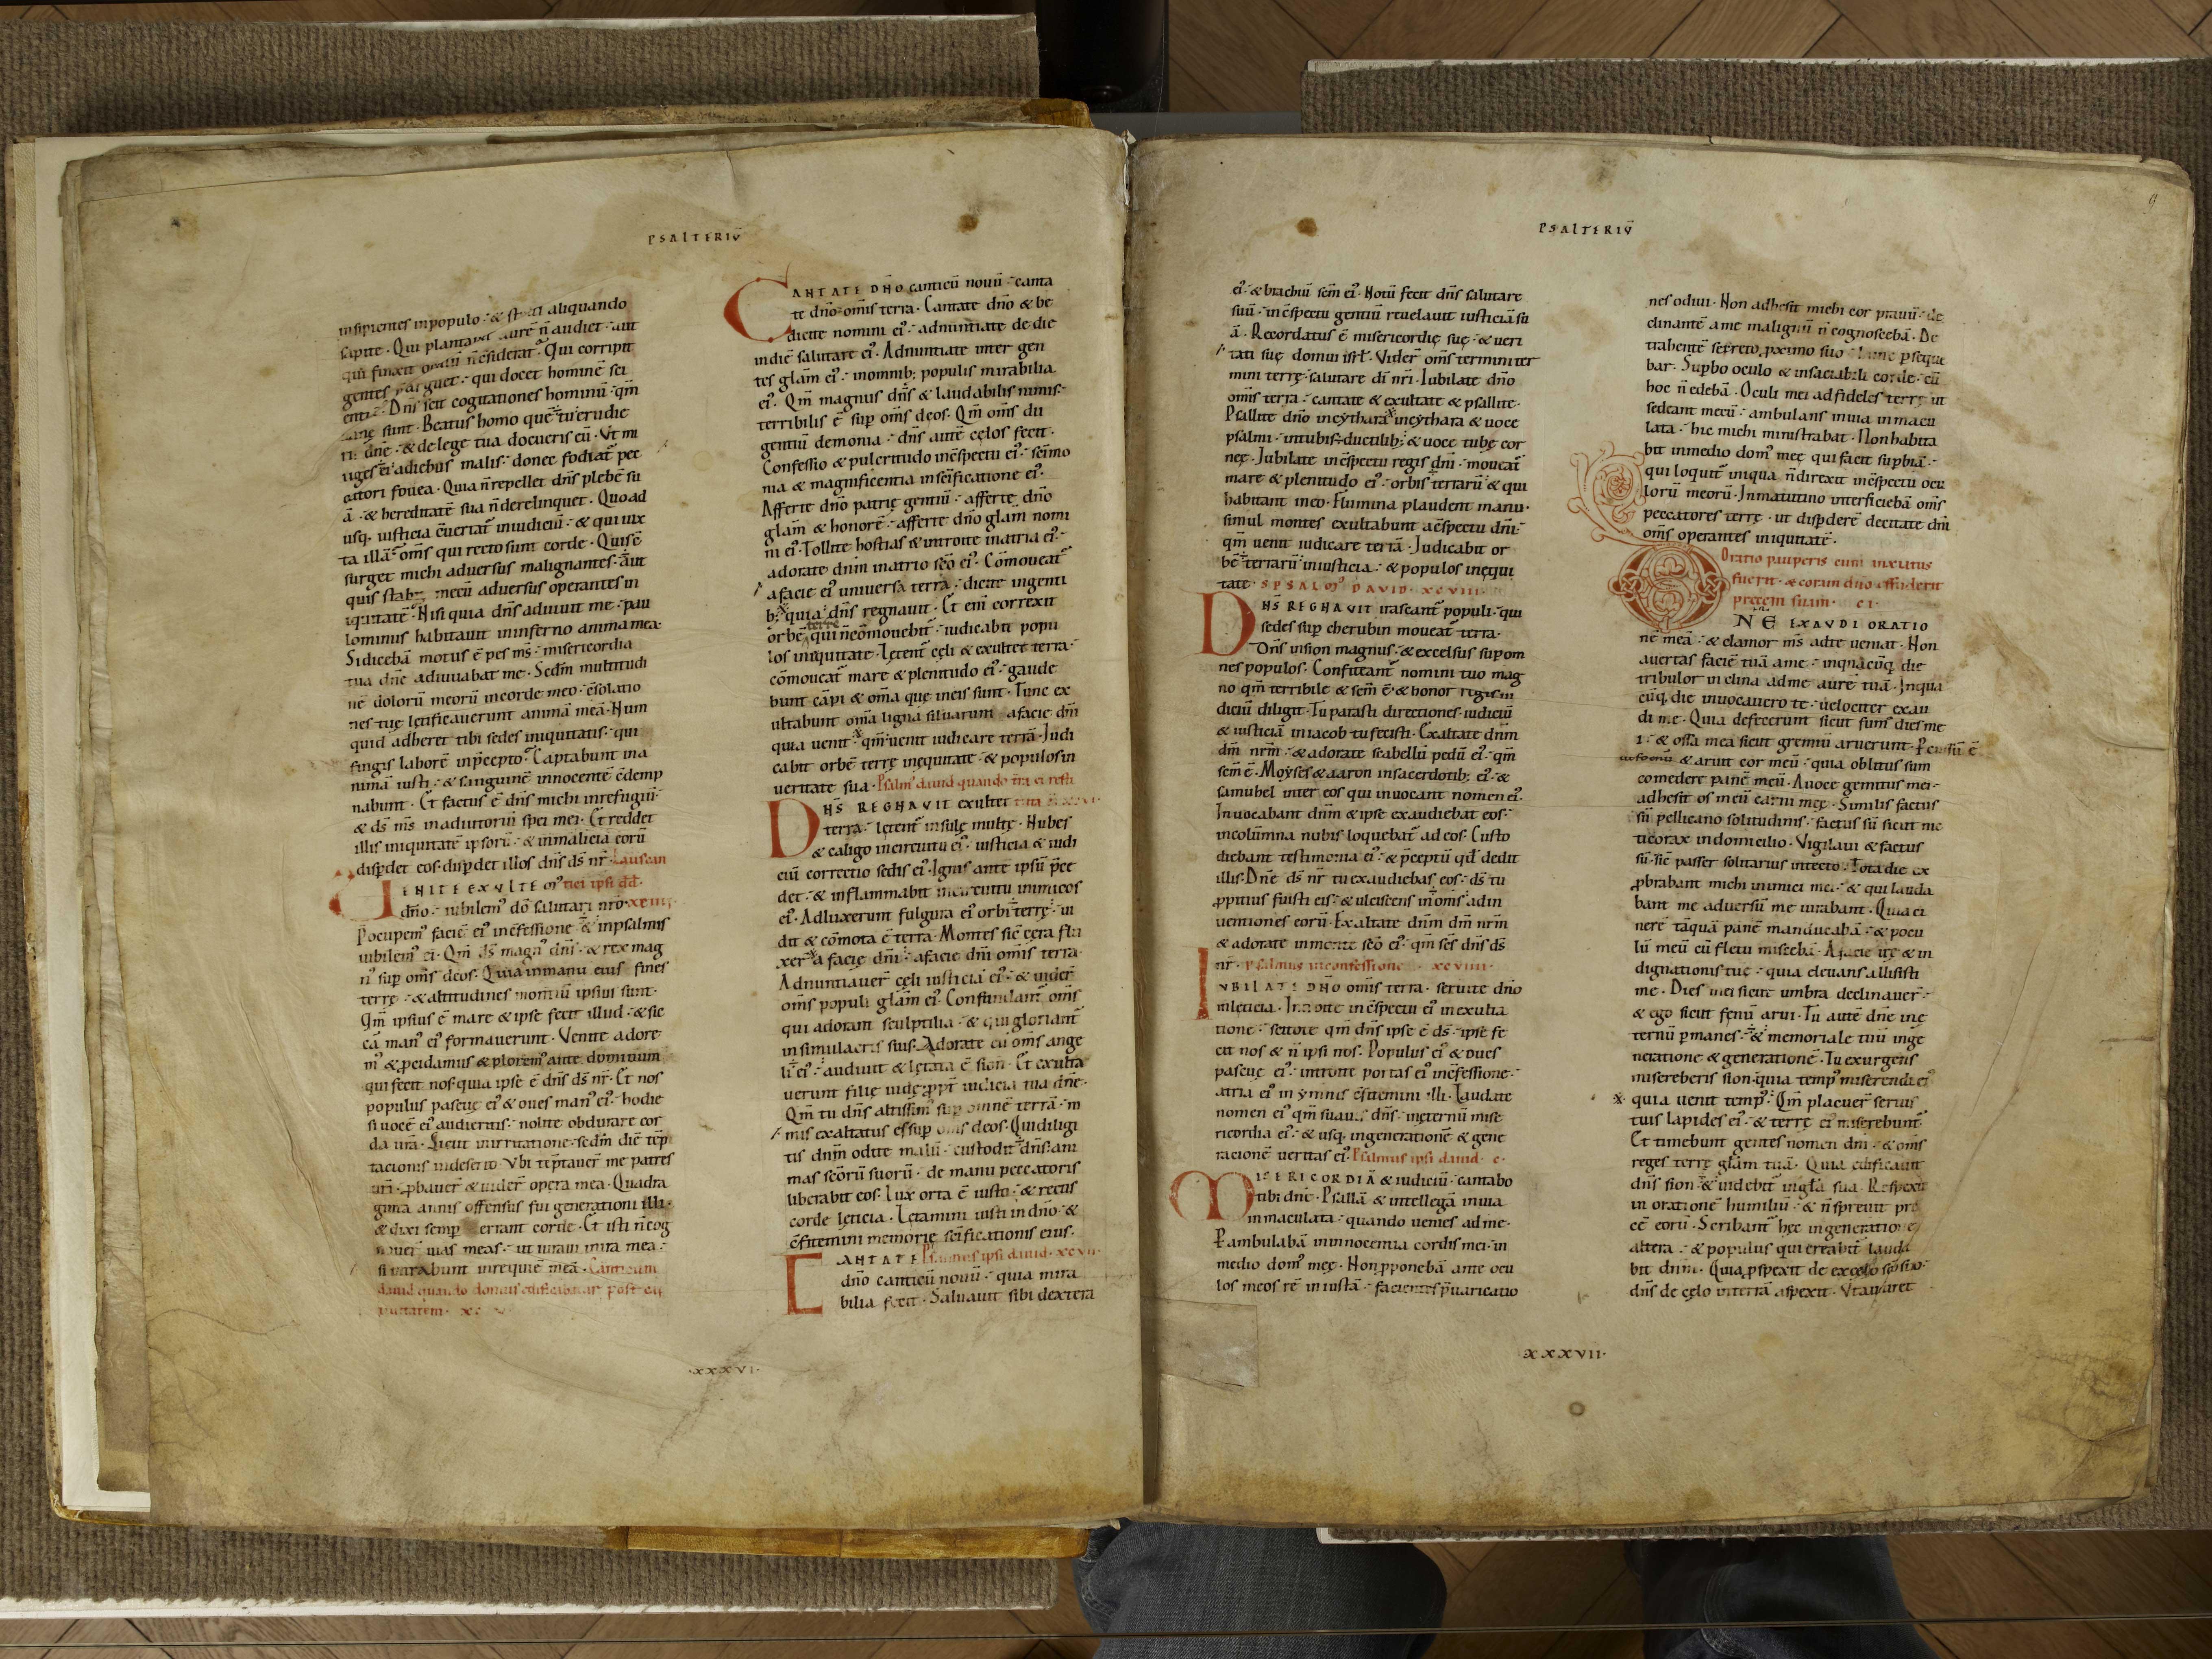 PSALTERIU̅
insipientes inpopulo · & aliquando
sapite · Qui aure̅ n̅ audiet · aut
qui finxit n̅ c̅siderat · Qui corripit
gentes n̅ arguet · qui docet homine̅ sci
entia̅ · Dn̅s scit cogitationes hominu̅ · qm̅
sunt · Beatus homo que̅ tu erudie
ris dn̅e · & de lege tua docueris eu̅ · Ut mi
tiges ei adiebus malis · donec fodiat̅ pec
catori fouea · Quia n̅ repellet dn̅s plebe̅ su
a̅ · & hereditate̅ sua n̅ derelinquet · Quo ad
usq · iusticia c̅uertat̅ iniudiciu̅ · & qui iux
ta illa̅ om̅s qui recto sunt corde · Quis c̅
surget michi adversus malignantes · aut
quis stabit mecu̅ adversus operantes in
iquitate̅ · Nisi quia dn̅s adiuuit me · pau
lominus habitauit ininferno anima mea ·
Si diceba̅ motus e̅ pes ms̅ · misericordia
tua dn̅e adiuuabat me · Scd̅m multitudi
ne̅ doloru̅ meoru̅ incorde meo · c̅solatio
nes tue̜ letificauerunt anima̅ mea̅ · Num
quid adheret tibi sedes iniquitatis · qui
fingis labore̅ inp̅cepto · Captabunt ina
nima̅ iusti · & sanguine̅ innocente̅ c̅demp
nabunt · Et factus e̅ dn̅s michi inrefugiu̅ ·
& ds̅ ms̅ inadiutoriu̅ spei mei · Et reddet
illis iniquitate̅ ipsoru̅ · & inmalicia eoru̅
disp̅det eos · disp̅det illos dn̅s ds̅ nr̅ · Laus can
ENITE EXULTEm᾽ tici ipsi dd̅ ·
dn̅o · iubilem᾽ do̅ salutari nr̅o · xciiii ·
P̅occupem᾽ facie̅ ei᾽ inc̅fessione · & inpsalmis
iubilem᾽ ei · Qm̅ ds̅ magn᾽ dn̅s · & rex mag
n᾽ sup̅ om̅s deos · Quia inmanu eius fines
terre̜ · & altitudines montiu̅ ipsius sunt ·
Qm̅ ipsius e̅ mare & ipse fecit illud · & sic
ca̅ man᾽ ei᾽ formauerunt · Venite adore
m᾽ & p̅cidamus & plorem᾽ ante dominum
qui fecit nos · quia ipse e̅ dn̅s ds̅ nr̅ · Et nos
populus pascue̜ ei᾽ & oues man᾽ ei᾽ · hodie
si uoce̅ ei᾽ audieritis · nolite obdurare cor
da ura̅ · Sicut inirritatione · scd̅m die̅ te̅p
tacionis indeserto · Vbi te̅ptauer̅ me patres
uri̅ · p̅bauer̅ & uider̅ opera mea · Quadra
ginta annis offensus fui generationi illi ·
& dixi semp̅ errant corde · Et isti n̅ cog
nouer̅ uias meas · ut iuraui inira mea ·
si intrabunt inrequie̅ mea̅ · Canticum
david quando domus edificabatur post cap
tiuitatem · xcv
CANTATE DN̅O canticu̅ nouu̅ · canta
te dn̅o om̅is terra · Cantate dn̅o & be
dicite nomini ei᾽ · adnuntiate de die
indie̅ salutare ei᾽ · Adnuntiate inter gen
tes gla̅m ei᾽ · inomnib; populis mirabilia
ei᾽ · Qm̅ magnus dn̅s & laudabilis nimis ·
terribilis e̅ sup̅ om̅s deos · Qm̅ om̅s dii
gentiu̅ demonia · dn̅s aute̅ ce̜los fecit ·
Confessio & pulcritudo inc̅spectu ei᾽ · sci̅mo
nia & magnificentia insci̅ficatione ei᾽ ·
Afferte dn̅o patrie̜ gentiu̅ · afferte dn̅o
gla̅m & honore̅ · afferte dn̅o gla̅m nomi
ni ei᾽ · Tollite hostias & introite inatria ei᾽ ·
adorate dn̅m inatrio sc̅o ei᾽ · Co̅moueat̅
afacie ei᾽ uniuersa terra · dicite ingenti
b; quia dn̅s regnauit · Et eni̅ correxit
orbe̅ terre qui n̅ co̅mouebit̅ · iudicabit popu
los iniquitate · Le̜tent̅ ce̜li & exultet terra ·
co̅moueat̅ mare & plenitudo ei᾽ · gaude
bunt ca̅pi & om̅a que ineis sunt · Tunc ex
ultabunt om̅a ligna siluarum afacie dn̅i
quia uenit · qm̅ uenit iudicare terra̅ · Judi
cabit orbe̅ terre̜ inequitate · & populos in
ueritate sua · Psalm᾽ david quando tr̅a ei resti
DN̅S REGNAVIT exultet tuta
terra · le̜tent̅ insule̜ multe̜ · Nubes
& caligo incircuitu ei᾽ · iusticia & iudi
ciu̅ correctio sedis ei᾽ · Ignis ante ipsu̅ p̅ce
det · & inflammabit incircuitu inimicos
ei᾽ · Adluxerunt fulgura ei᾽ orbi terre̜ · ui
dit & co̅mota e̅ terra · Montes sic̅ ce̜ra flu
xer̅ a facie̜ dn̅i · afacie dn̅i omis̅ terra ·
Adnuntiauer̅ ce̜li iusticia̅ ei᾽ · & uider̅
om̅s populi gla̅m ei᾽ · Confundant̅ om̅s
qui adorant sculptilia · & qui gloriant̅
insimulacris suis · Adorate eu̅ om̅s ange
li ei᾽ · audiuit & le̜tata e̅ sion · Et exulta
uerunt filie̜ iude̜ p̅pt̅ iudicia tua dn̅e ·
Qm̅ tu dn̅s altissim᾽ sup̅ omne̅ terra̅ · ni
mis exaltatus es sup̅ om̅s deos · Qui diligi
tis dn̅m odite malu̅ · custodit dn̅s ani
mas sc̅oru̅ suoru̅ · de manu peccatoris
liberabit eos · Lux orta e̅ iusto · & rectis
corde le̜ticia · Le̜tamini iusti in dn̅o · &
c̅fitemini memorie̜ sci̅ficationis eius ·
CANTATE Psalmus ipsi david · xcvii ·
dn̅o canticu̅ nouu̅ · quia mira
bilia fecit · Saluauit sibi dextera
·XXXVI·
PSALTERIU̅
9
ei᾽ · & brachiu̅ scm̅ ei᾽ · Notu̅ fecit dn̅s salutare
suu̅ · inc̅spectu gentiu̅ reuelauit iusticia̅ su
a̅ · Recordatus e̅ misericordie̜ sue̜ · & ueri
tati sue̜ domui isrl̅ · Vider̅ om̅s termini ter
mini terre̜ · salutare di̅ nr̅i · Iubilate dn̅o
om̅is terra · cantate & exultate & psallite ·
Psallite dn̅o incythara incythara & uoce
psalmi · intubis ductilib; & uoce tube̜ cor
nee̜ · Jubilate inc̅spectu regis dn̅i · moueat̅
mare & plenitudo ei᾽ · orbis terraru̅ & qui
habitant ineo · Flumina plaudent manu ·
simul montes exultabunt ac̅spectu dn̅i ·
qm̅ uenit iudicare terra̅ · Judicabit or
be̅ terraru̅ iniusticia · & populos ine̜qui
tate · SPSALM᾽ DAVID · XCVIII ·
DN̅S REGNAVIT irascant̅ populi · qui
sedes sup̅ cherubin moueat̅ terra ·
Dn̅s insion magnus · & excelsus sup̅ om
nes populos · Confiteant̅ nomini tuo mag
no qm̅ terribile & scm̅ e̅ · & honor regis iu
diciu̅ diligit · Tu parasti directiones · iudiciu̅
& iusticia̅ iniacob tu fecisti · Exaltate dnm̅
dm̅ nrm̅ · & adorate scabellu̅ pedu̅ ei᾽ · qm̅
scm̅ e̅ · Moyses & aaron insacerdotib; ei᾽ · &
samuhel inter eos qui inuocant nomen ei᾽ ·
Inuocabant dn̅m & ipse exaudiebat eos ·
incolu̅mna nubis loquebat̅ ad eos · Custo
diebant testimonia ei᾽ · & p̅ceptu̅ qd̅ dedit
illis · Dn̅e ds̅ nr̅ tu exaudiebas eos · ds̅ tu
p̅pitius fuisti eis · & ulciscens in om̅s adin
uentiones eoru̅ · Exaltate dn̅m dm̅ nrm̅
& adorate inmonte sc̅o ei᾽ · qm̅ sc̅s dn̅s ds̅
nr̅ · Psalmus inconfessione · xcviiii ·
IVBILATE DN̅O om̅is terra · seruite dn̅o
inle̜ticia · Introite inc̅spectu ei᾽ inexulta
tione · scitote qm̅ dn̅s ipse e̅ ds̅ · ipse fe
cit nos & n̅ ipsi nos · Populus ei᾽ & oues
pascue̜ ei᾽ · introite portas ei᾽ inc̅fessione ·
atria ei᾽ in ymnis c̅fitemini illi · Laudate
nomen ei᾽ qm̅ suauis dn̅s · ine̜ternu̅ mise
ricordia ei᾽ · & usq · ingeneratione̅ & gene
racione̅ ueritas ei᾽ · Psalmus ipsi david · c ·
MISERICORDIA̅ & iudiciu̅ · cantabo
tibi dn̅e · Psalla̅ & intellega̅ inuia
inmaculata · quando uenies ad me ·
P̅ambulaba̅ ininnocentia cordis mei · in
medio dom᾽ mee̜ · Non p̅poneba̅ ante ocu
los meos re̅ iniusta̅ · facientes p̅uaricatio
nes odiui · Non adhesit michi cor prauu̅ · de
clinante̅ ame malignu̅ n̅ cognosceba̅ · De
trahente̅ secreto p̅ximo suo · hunc p̅seque
bar · Sup̅bo oculo & insaciabili corde · cu̅
hoc n̅ edeba̅ · Oculi mei ad fideles terre̜ ut
sedeant mecu̅ · ambulans inuia inmacu
lata · hic michi ministrabat · Non habita
bit inmedio dom᾽ mee̜ qui facit sup̅bia̅ ·
qui loquit̅ iniqua n̅ direxit inc̅spectu ocu
loru̅ meoru̅ · Inmatutino interficieba̅ om̅s
peccatores terre̜ · ut disp̅dere̅ decitate dn̅i
om̅s operantes iniquitate̅ ·
Oratio pauperis cum anxiatus
fuerit · & coram dn̅o effuderit
precem suam · ci ·
DN̅E EXAVDI ORATIO
ne̅ mea̅ · & clamor ms̅ ad te ueniat · Non
auertas facie̅ tua̅ ame · inquacu̅q · die
tribulor inclina ad me aure̅ tua̅ · Inqua
cu̅q · die inuocauero te · uelociter exau
di me · Quia defecerunt sicut fum᾽ dies me
i · & ossa mea sicut gremiu̅ aruerunt · P̅cussu̅ e̅
& aruit cor meu̅ · quia oblitus sum
comedere pane̅ meu̅ · Auoce gemitus mei ·
adhesit os meu̅ carni mee̜ · Similis factus
su̅ pellicano solitudinis · factus su̅ sicut nic
ticorax indomicilio · Vigilaui & factus
su̅ · sic̅ passer solitarius intecto · Tota die ex
p̅brabant michi inimici mei · & qui lauda
bant me aduersu̅ me iurabant · Quia ci
nere̅ ta̅qua̅ pane̅ manducaba̅ · & pocu
lu̅ meu̅ cu̅ fletu misceba̅ · Afacie ire̜ & in
dignationis tue̜ · quia eleuans allisisti
me · Dies mei sicut umbra declinauer̅ ·
& ego sicut fenu̅ arui · Tu aute̅ dn̅e ine̜
ternu̅ p̅manes · & memoriale tuu̅ inge
neratione & generatione̅ · Tu exurgens
misereberis sion · quia temp᾽ miserendi ei᾽
quia uenit temp᾽ · Qm̅ placuer̅ seruis
tuis lapides ei᾽ · & terre̜ ei᾽ miserebunt̅ ·
Et timebunt gentes nomen dn̅i · & om̅s
reges terre̜ gla̅m tua̅ · Quia edificauit
dn̅s sion · & uidebit̅ ingl̅a sua · Respexit
in oratione̅ humiliu̅ · & n̅ spreuit pre
ce̅ eoru̅ · Scribant̅ hec ingeneratione
altera · & populus qui creabit̅ lauda
bit dn̅m · Quia p̅spexit de excelso sc̅o suo ·
dn̅s de ce̜lo interra̅ aspexit · Vt audiret
XXXVII·